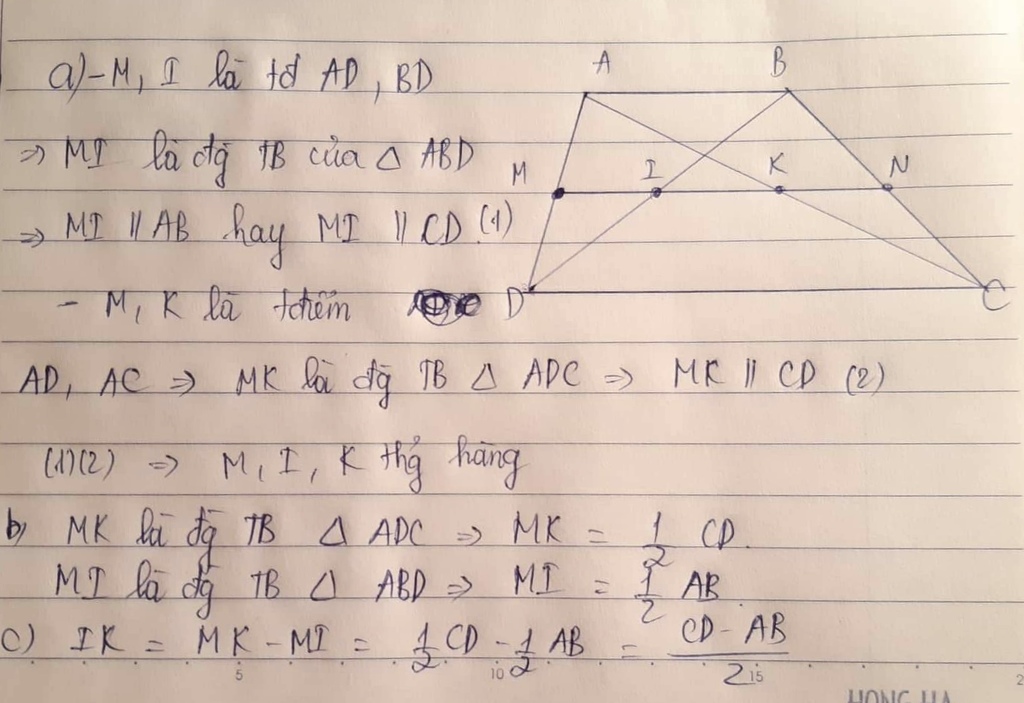 a) - M, I là tđ AD, BD
⇒ MI là đg TB của △ ABD
⇒ MI // AB hay MI // CD (1)
- M, K là tđiểm
AD, AC ⇒ MK là đg TB △ ADC ⇒ MK // CD (2)
(1)(2) ⇒ M, I, K thg hàng
b) MK là đg TB △ ADC ⇒ MK = 1/2 CD.
MI là đg TB △ ABD ⇒ MI = 1/2 AB.
c) IK = MK - MI = 1/2 CD - 1/2 AB = (CD - AB)/2
A B
M I K N
D C
5 10 15 2
HONG HA